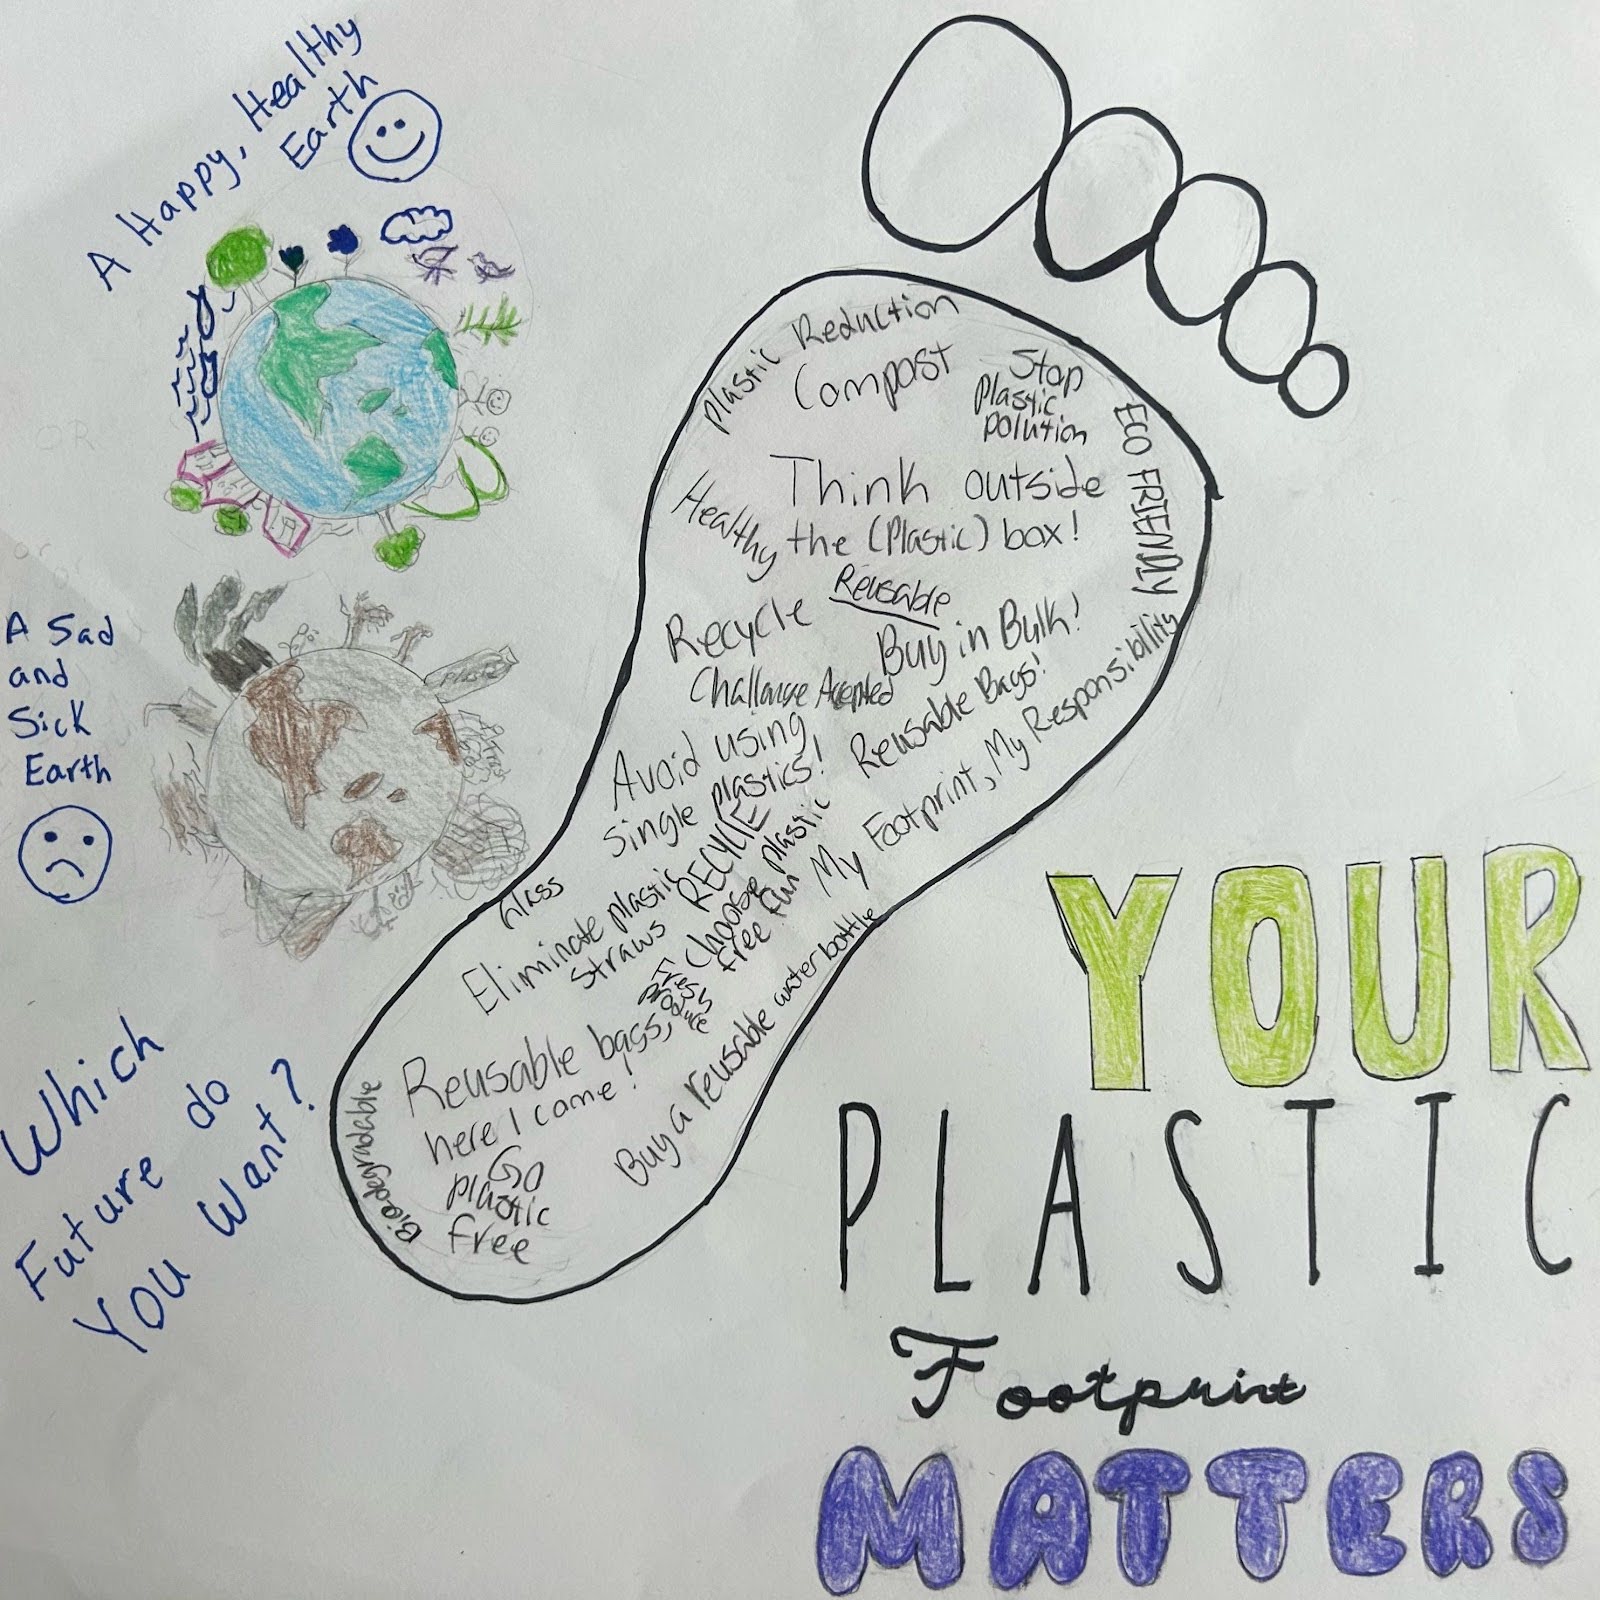 A Happy, Healthy
Earth
OR
or
A Sad
and
Sick
Earth
plastic
Which
Future do
You Want?
Plastic Reduction
Compost
Stop
Plastic
polution
ECO FRIENDLY
Think outside
the (Plastic) box!
Healthy
Reusable
Recycle
Buy in Bulk!
Challange Acepted
Reusable Bags!
Avoid using
single plastics!
My Footprint, My Responsibility
RECYCLE
Choose plastic
free fun
Glass
Eliminate plastic
straws
Reusable bags,
here I come!
Buy a reusable water bottle
Biodegradable
Go
plastic
free
YOUR
PLASTIC
Footprint
MATTERS